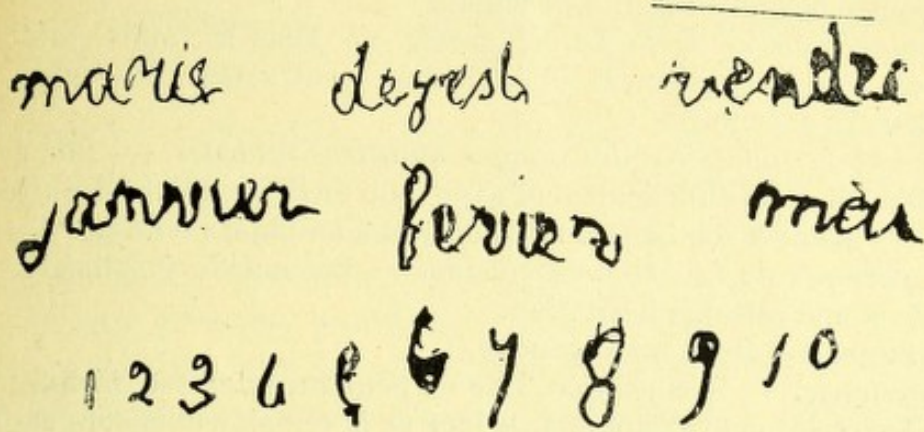 maris deyest vendre
janvier fevier mar
1 2 3 4 5 6 7 8 9 10